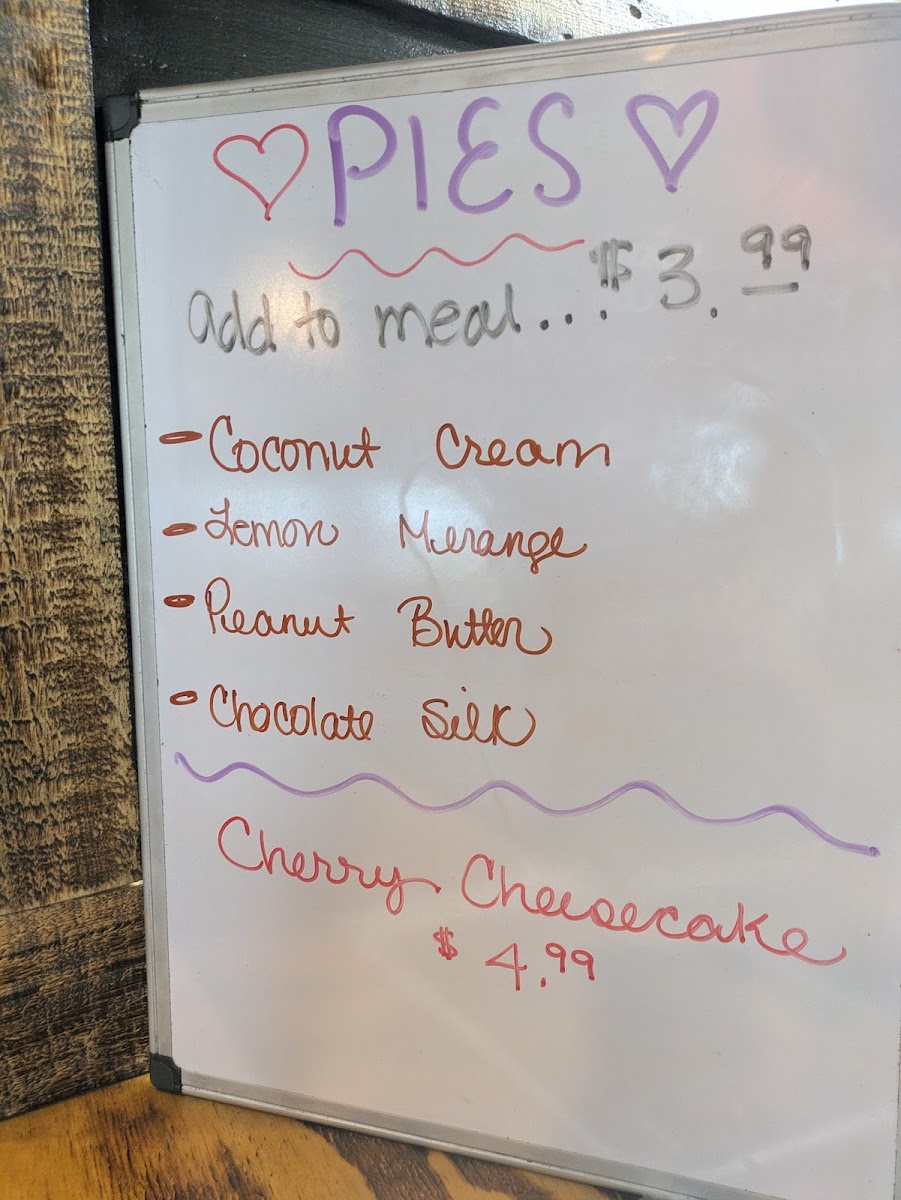 PIES
add to meal...$3.99
- Coconut Cream
- Lemon Merange
- Peanut Butter
- Chocolate Silk
Cherry Cheesecake
$4.99